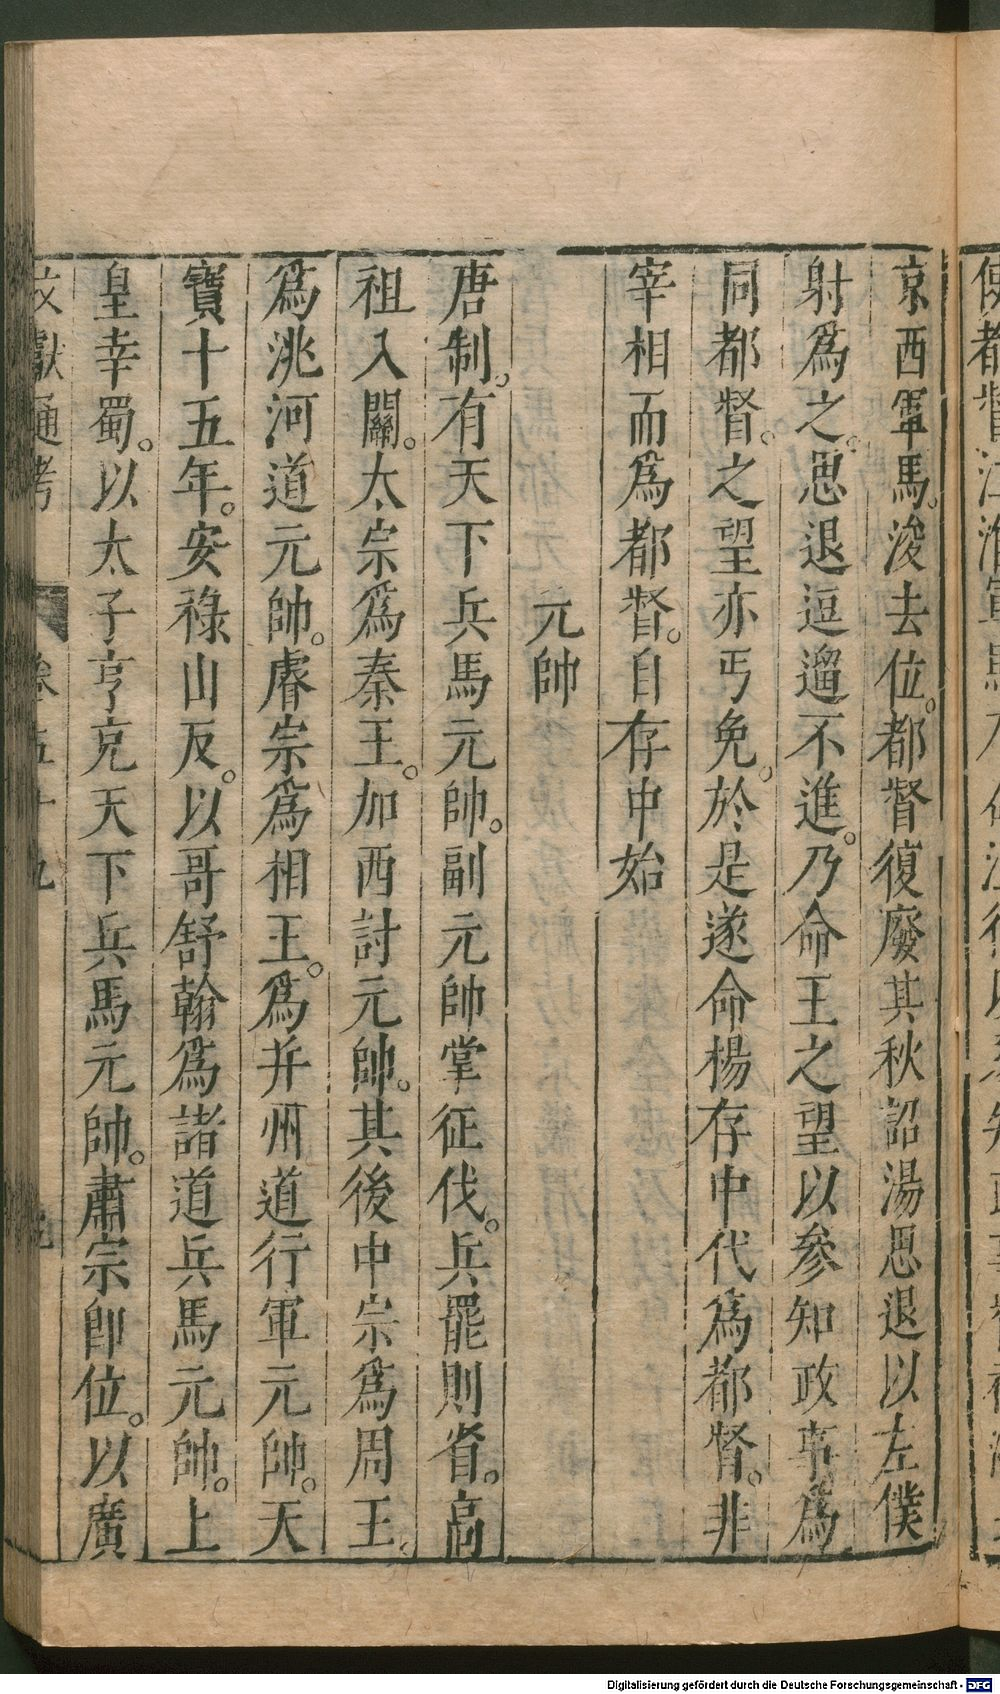 京西軍馬。浚去位。都督復廢其秋詔湯思退以左僕
射爲之。思退逗遛不進。乃命王之望以參知政事爲
同都督。之望亦丐免。於是遂命楊存中代爲都督。非
宰相而爲都督。自存中始
元帥
唐制。有天下兵馬元帥。副元帥掌征伐。兵罷則省。高
祖入關。太宗爲秦王。加西討元帥。其後中宗爲周王。
爲洮河道元帥。睿宗爲相王。爲并州道行軍元帥。天
寶十五年。安祿山反。以哥舒翰爲諸道兵馬元帥。上
皇幸蜀。以太子亨克天下兵馬元帥。肅宗卽位。以廣
文獻通考 卷五十九
Digitalisierung gefördert durch die Deutsche Forschungsgemeinschaft - DFG